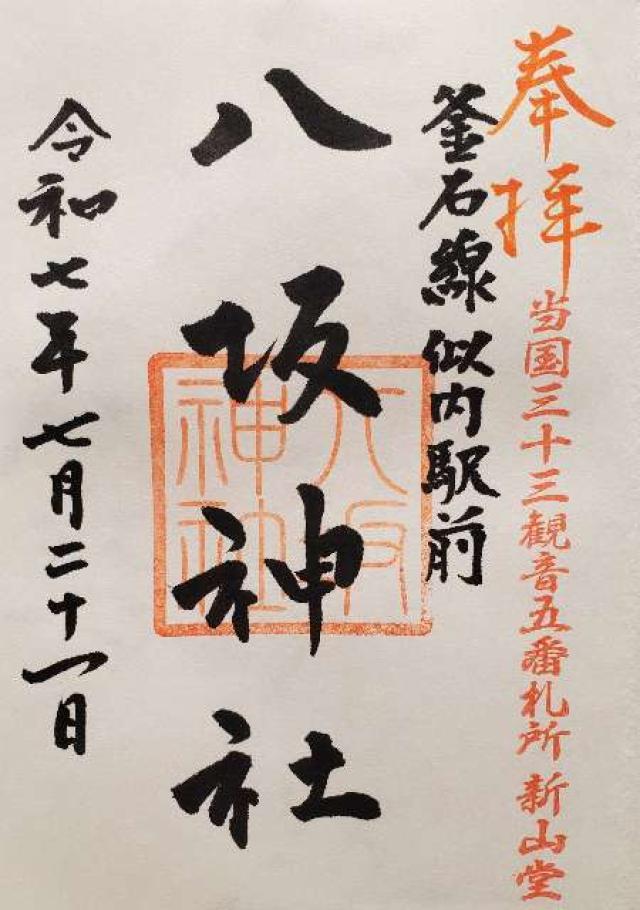 奉拝
当国三十三観音五番札所 新山堂
釜石線 似内駅前
八坂神社
八坂神社
令和七年七月二十一日